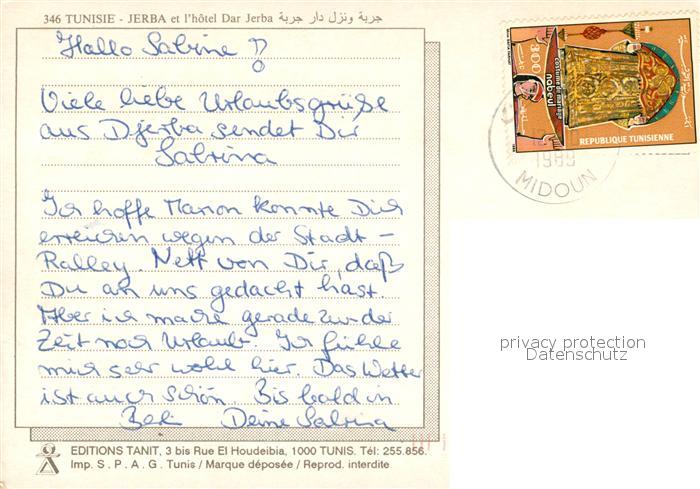 346 TUNISIE - JERBA et l'hôtel Dar Jerba جربة ونزل دار جربة
Hallo Sabine !
Viele liebe Urlaubsgrüße
aus Djerba sendet Dir
Sabrina
Ich hoffe Marion konnte Dich
erreichen wegen der Stadt-
Ralley. Nett von Dir, daß
Du an uns gedacht hast.
Aber ich mache gerade zur der
Zeit noch Urlaub. Ich fühle
mich sehr wohl hier. Das Wetter
ist auch schön. Bis bald in
Deine Sabrina
EDITIONS TANIT, 3 bis Rue El Houdeibia, 1000 TUNIS. Tél: 255.856.
Imp. S. P. A. G. Tunis / Marque déposée / Reprod. interdite
300
costume de mariage
nabeul
REPUBLIQUE TUNISIENNE
1989
MIDOUN
privacy protection
Datenschutz